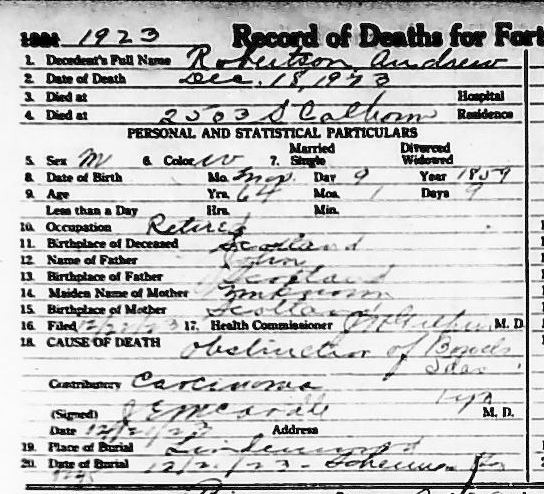 1923 Record of Deaths for Fort
1. Decedent's Full Name Robertson, Andrew
2. Date of Death Dec. 18, 1923
3. Died at Hospital
4. Died at 2503 S Calhoun Residence
PERSONAL AND STATISTICAL PARTICULARS
Married Divorced
5. Sex M 6. Color W 7. Single Widowed
8. Date of Birth Mo. Day 9 Year 1859
9. Age Yrs. 64 Mos. 1 Days 9
Less than a Day Hrs. Min.
10. Occupation Retired
11. Birthplace of Deceased Scotland
12. Name of Father John
13. Birthplace of Father Scotland
14. Maiden Name of Mother Unknown
15. Birthplace of Mother Scotland
16. Filed 17. Health Commissioner M. D.
18. CAUSE OF DEATH Obstruction of Bowels
Contributory Carcinoma
(Signed) J E McArdle M. D.
Date 12/21/23 Address
19. Place of Burial Lindenwood
20. Date of Burial 12/21/23 -